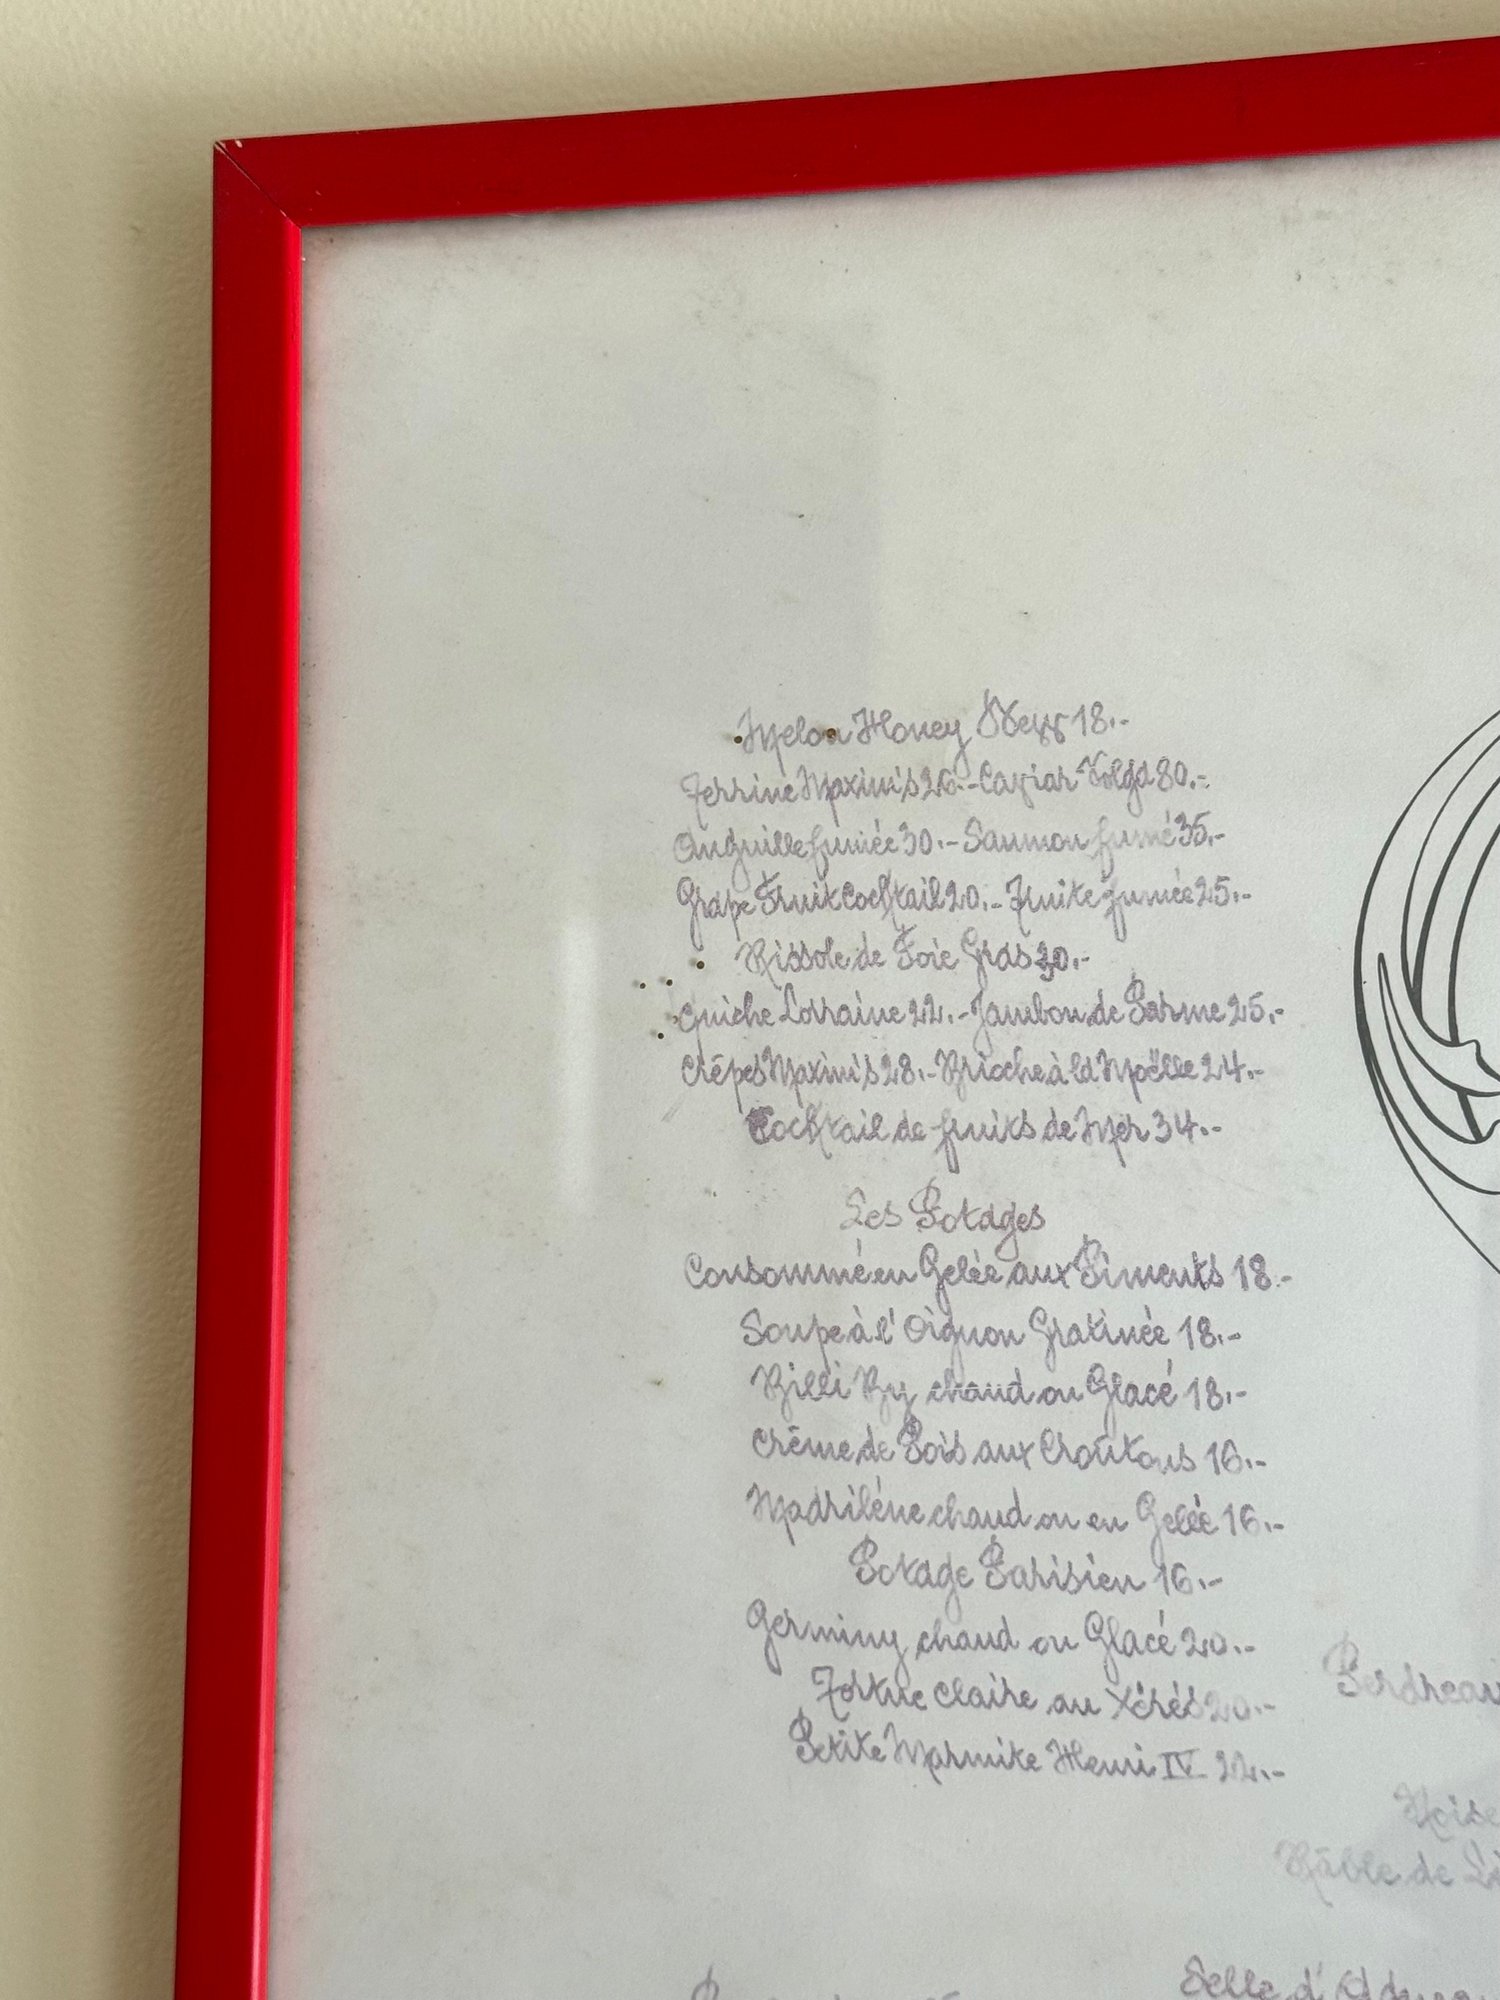 Melon Honey Dew 18.-
Terrine Maxim's 26.- Caviar Volga 80.-
Anguille fumée 30.- Saumon fumé 35.-
Grape Fruit Cocktail 20.- Truite fumée 25.-
Rissole de Foie Gras 30.-
Quiche Lorraine 22.- Jambon de Parme 25.-
Crêpes Maxim's 28.- Brioche à la Moëlle 24.-
Cocktail de fruits de Mer 34.-
Les Potages
Consommé en Gelée aux Piments 18.-
Soupe à l'Oignon Gratinée 18.-
Billi By chaud ou Glacé 18.-
Crême de Pois aux Croûtons 16.-
Madrilène chaud ou en Gelée 16.-
Potage Parisien 16.-
Germiny chaud ou Glacé 20.-
Tortue claire au Xérés 20.-
Perdreau
Petite Marmite Henri IV 22.-
Râble de
Selle d'